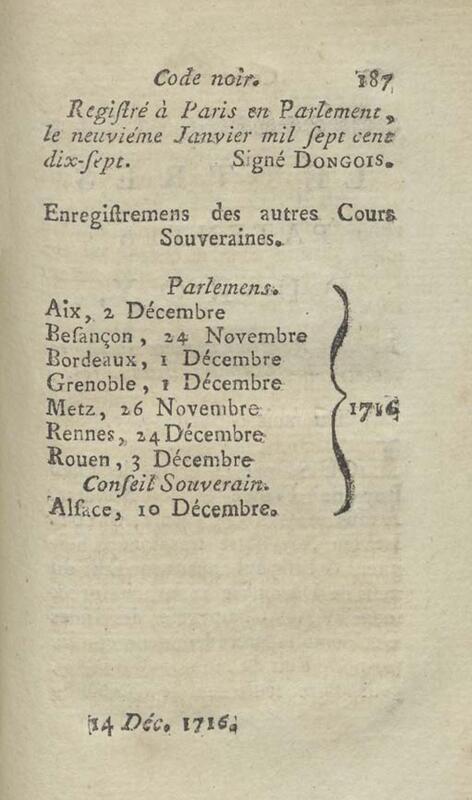 Code noir. 187
Regiſtré à Paris en Parlement,
le neuviéme Janvier mil ſept cent
dix-ſept. Signé DONGOIS.
Enregiſtremens des autres Cours
Souveraines.
Parlemens.
Aix, 2 Décembre
Beſançon, 24 Novembre
Bordeaux, 1 Décembre
Grenoble, 1 Décembre
Metz, 26 Novembre
1716
Rennes, 24 Décembre
Rouen, 3 Décembre
Conſeil Souverain.
Alſace, 10 Décembre.
14 Déc. 1716.